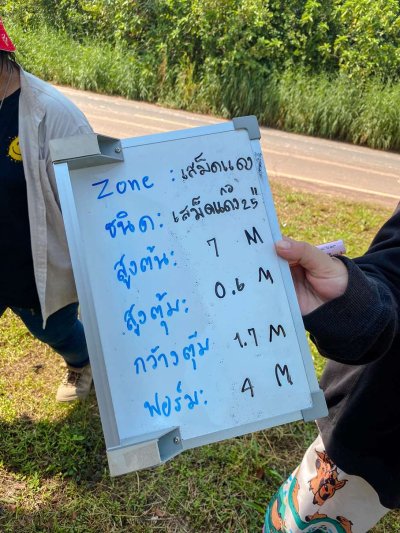 Zone : เสม็ดแดง
ชนิด : เสม็ดแดงกอ 25"
สูงต้น : 7 M
สูงตุ้ม : 0.6 M
กว้างตุ้ม 1.7 M
ฟอร์ม : 4 M